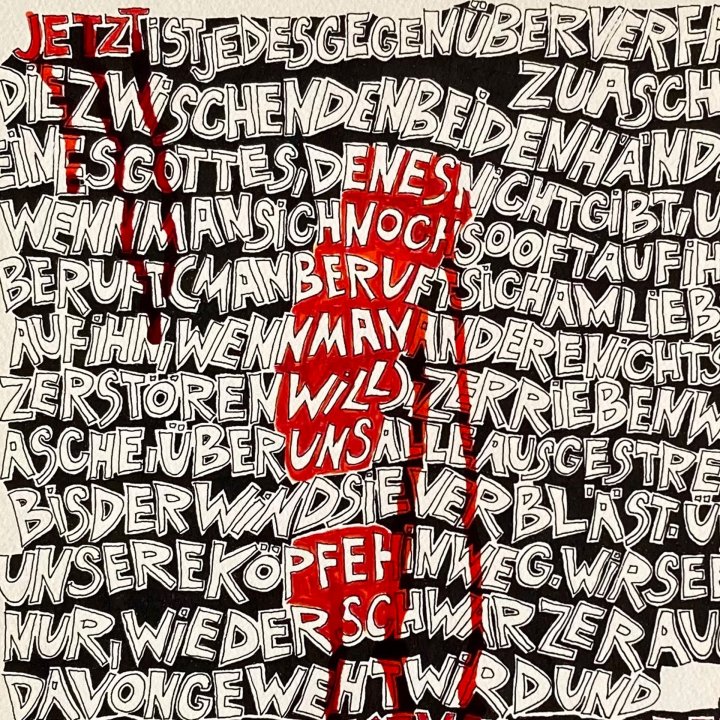 JETZTiSTJEDESGEGENÜBERVERFA
ZUASCH
DiEZWiSCHENDENBEiDENHÄND
EiNESGOTTES,DENESNiCHTGiBT,U
WENNMANSiCHNOCHSOOFTAUFiH
BERUFT(MANBERUFTSiCHAMLiEB
AUFiHN,WENNMANANDERENiCHTS
ZERSTÖRENWiLL),ZERRiEBENW
ASCHE,ÜBERUNSALLEAUSGESTRE
BiSDERWiNDSiEVERBLÄST.Ü
UNSEREKÖPFEHiNWEG.WiRSE
NUR,WiEDERSCHWARZERAU
DAVONGEWEHTWiRDUND